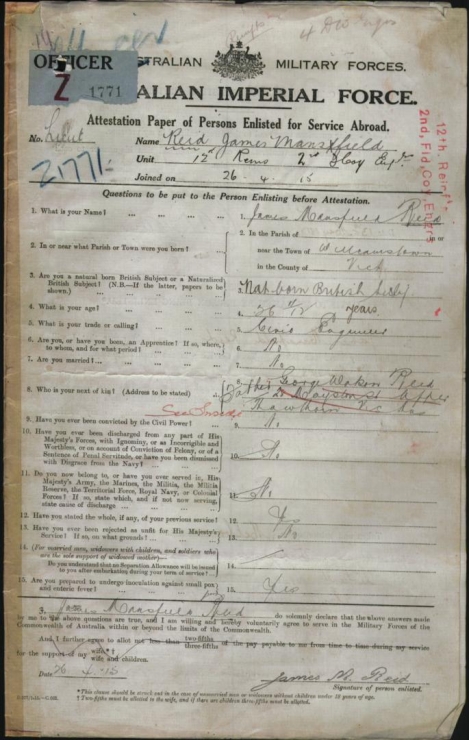 4 D W
OFFICER
Z 1771
AUSTRALIAN MILITARY FORCES.
AUSTRALIAN IMPERIAL FORCE.
Attestation Paper of Persons Enlisted for Service Abroad.
No. Lieut Name Reid James Mansfield
Unit 12th Reins 2nd F Coy Engrs
Z1771 Joined on 26 - 4 - 15
12th Reinf.
2nd. Fld. Coy. Engrs
Questions to be put to the Person Enlisting before Attestation.
1. What is your Name? ... ... ... ... 1. James Mansfield Reid
2. In or near what Parish or Town were you born? ... 2. In the Parish of or
near the Town of Williamstown
in the County of Vict
3. Are you a natural born British Subject or a Naturalized
British Subject? (N.B.—If the latter, papers to be
shown.) ... ... 3. Nat-born British Subj
4. What is your age? ... ... ... ... 4. 26 /12 years.
5. What is your trade or calling? ... ... ... 5. Civil Engineer
6. Are you, or have you been, an Apprentice? If so, where,
to whom, and for what period? ... ... 6. No
7. Are you married? ... ... ... ... 7. No
8. Who is your next of kin? (Address to be stated) ... 8. Father George Reid
Hawthorn Vic
9. Have you ever been convicted by the Civil Power? ... 9. No
10. Have you ever been discharged from any part of His
Majesty's Forces, with Ignominy, or as Incorrigible and
Worthless, or on account of Conviction of Felony, or of a
Sentence of Penal Servitude, or have you been dismissed
with Disgrace from the Navy? ... ... 10. No
11. Do you now belong to, or have you ever served in, His
Majesty's Army, the Marines, the Militia, the Militia
Reserve, the Territorial Force, Royal Navy, or Colonial
Forces? If so, state which, and if not now serving,
state cause of discharge ... ... 11. No
12. Have you stated the whole, if any, of your previous service? 12. Y
13. Have you ever been rejected as unfit for His Majesty's
Service? If so, on what grounds? ... ... 13. No
14. (For married men, widowers with children, and soldiers who
are the sole support of widowed mother)—
Do you understand that no Separation Allowance will be issued
to you after embarkation during your term of service? 14.
15. Are you prepared to undergo inoculation against small pox
and enteric fever? ... ... ... 15. Yes
I, James Mansfield Reid do solemnly declare that the above answers made
by me to the above questions are true, and I am willing and hereby voluntarily agree to serve in the Military Forces of the
Commonwealth of Australia within or beyond the limits of the Commonwealth.
And I further agree to allot not less than two-fifths
three-fifths of the pay payable to me from time to time during my service
for the support of my wife*†
wife and children.
Date 26 - 4 - 15 James M. Reid
Signature of person enlisted.
* This clause should be struck out in the case of unmarried men or widowers without children under 18 years of age.
† Two-fifths must be allotted to the wife, and if there are children three-fifths must be allotted.